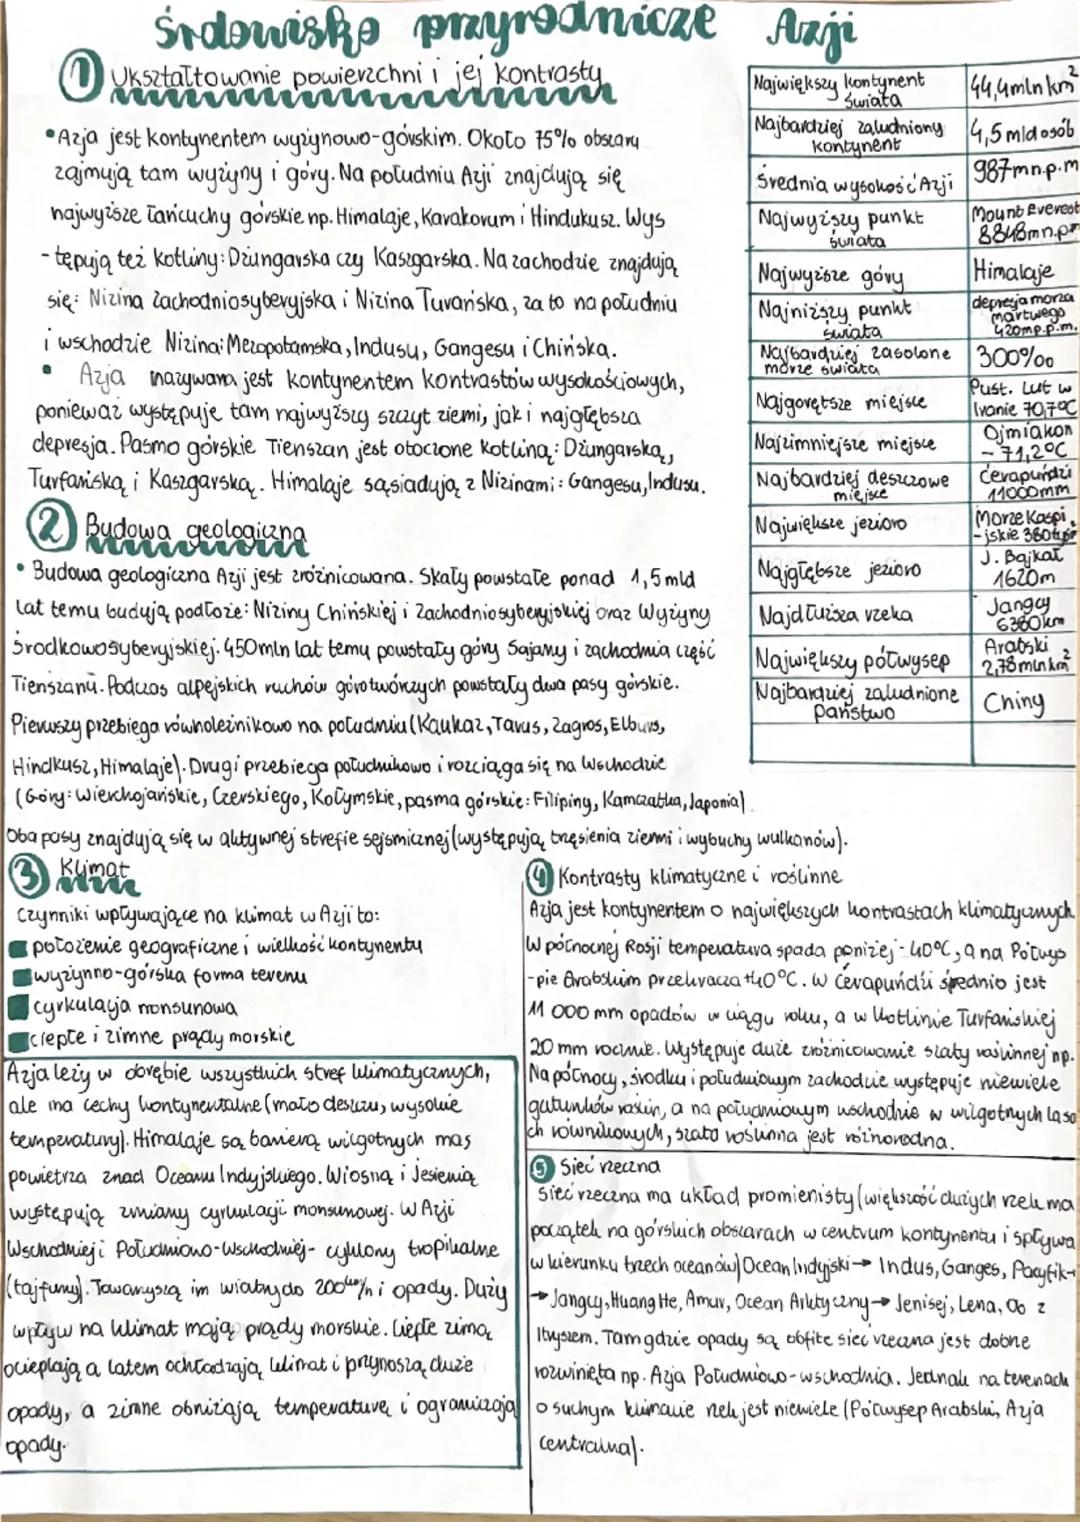 Środowisko przyrodnicze Azji
① Ukształtowanie powierzchni i jej kontrasty
•Azja jest kontynentem wyżynowo-górskim. Około 75% obszaru
zajmują tam wyżyny i góry. Na południu Azji znajdują się
najwyższe łańcuchy górskie np. Himalaje, Karakorum i Hindukusz. Wys
-tępują też kotliny: Dżungarska czy Kaszgarska. Na zachodzie znajdują
się: Nizina Zachodniosyberyjska i Nizina Turańska, za to na południu
i wschodzie Nizina: Mezopotamska, Indusu, Gangesu i Chińska.
• Azja nazywana jest kontynentem kontrastów wysokościowych,
ponieważ występuje tam najwyższy szczyt ziemi, jak i najgłębsza
depresja. Pasmo górskie Tienszan jest otoczone kotliną: Dżungarską,
Turfańską i Kaszgarską. Himalaje sąsiadują z Nizinami: Gangesu, Indusu.
② Budowa geologiczna
• Budowa geologiczna Azji jest zróżnicowana. Skały powstałe ponad 1,5 mld
lat temu budują podłoże: Niziny Chińskiej i Zachodniosyberyjskiej oraz Wyżyny
Środkowosyberyjskiej. 450mln lat temu powstały góry Sajany i zachodnia część
Tienszanu. Podczas alpejskich ruchów górotwórczych powstały dwa pasy górskie.
Pierwszy przebiega równoleżnikowo na południu (Kaukaz, Taurus, Zagros, Elburs,
Hindkusz, Himalaje). Drugi przebiega południkowo i rozciąga się na Wschodzie
(Góry: Wierchojańskie, Czerskiego, Kołymskie, pasma górskie: Filipiny, Kamczatka, Japonia)
Oba pasy znajdują się w aktywnej strefie sejsmicznej (występują trzęsienia ziemi i wybuchy wulkanów).
Największy kontynent świata 44,4mln km²
Najbardziej zaludniony kontynent 4,5 mld osób
Średnia wysokość Azji 987m n.p.m
Najwyższy punkt świata Mount Everest 8848m n.p.m
Najwyższe góry Himalaje
Najniższy punkt świata depresja morza martwego 420m p.p.m.
Najbardziej zasolone morze świata 300‰
Najgorętsze miejsce Pust. Lut w Iranie 70,7°C
Najzimniejsze miejsce Ojmiakon -71,2°C
Najbardziej deszczowe miejsce Čerapuńdżi 11000mm
Największe jezioro Morze Kaspi -jskie
Najgłębsze jezioro J. Bajkał 1620m
Najdłuższa rzeka Jangcy 6380km
Największy półwysep Arabski 2,78mln km²
Najbardziej zaludnione państwo Chiny
③ Klimat
Czynniki wpływające na klimat w Azji to:
położenie geograficzne i wielkość kontynentu
wyżynno-górska forma terenu
cyrkulacja monsunowa
ciepłe i zimne prądy morskie
Azja leży w obrębie wszystkich stref klimatycznych,
ale ma cechy kontynentalne (mało deszczu, wysokie
temperatury). Himalaje są barierą wilgotnych mas
powietrza znad Oceanu Indyjskiego. Wiosną i Jesienią
występują zmiany cyrkulacji monsunowej. W Azji
Wschodniej i Południowo-Wschodniej- cyklony tropikalne
(tajfuny). Towarzyszą im wiatry do 200km/h i opady. Duży
wpływ na klimat mają prądy morskie. Ciepłe zimą
ocieplają a latem ochładzają klimat i przynoszą duże
opady, a zimne obniżają temperaturę i ograniczają
opady.
④ Kontrasty klimatyczne i roślinne
Azja jest kontynentem o największych kontrastach klimatycznych.
W północnej Rosji temperatura spada poniżej -40°C, a na Półwys
-pie Arabskim przekracza +40°C. W Čerapuńdżi średnio jest
11 000 mm opadów w ciągu roku, a w Kotlinie Turfańskiej
20 mm rocznie. Występuje duże zróżnicowanie szaty roślinnej np.
Na północy, środku i południowym zachodzie występuje niewiele
gatunków roślin, a na południowym wschodnie w wilgotnych laso
ch równikowych, szata roślinna jest różnorodna.
⑤ Sieć rzeczna
Sieć rzeczna ma układ promienisty (większość dużych rzek ma
początek na górskich obszarach w centrum kontynentu i spływa
w kierunku trzech oceanów) Ocean Indyjski→ Indus, Ganges, Pacyfik→
→Jangcy, Huang He, Amur, Ocean Arktyczny→ Jenisej, Lena, Ob z
Irtyszem. Tam gdzie opady są obfite sieć rzeczna jest dobrze
rozwinięta np. Azja Południowo-wschodnia. Jednak na terenach
o suchym klimacie rzek jest niewiele (Półwysep Arabski, Azja
centralna).